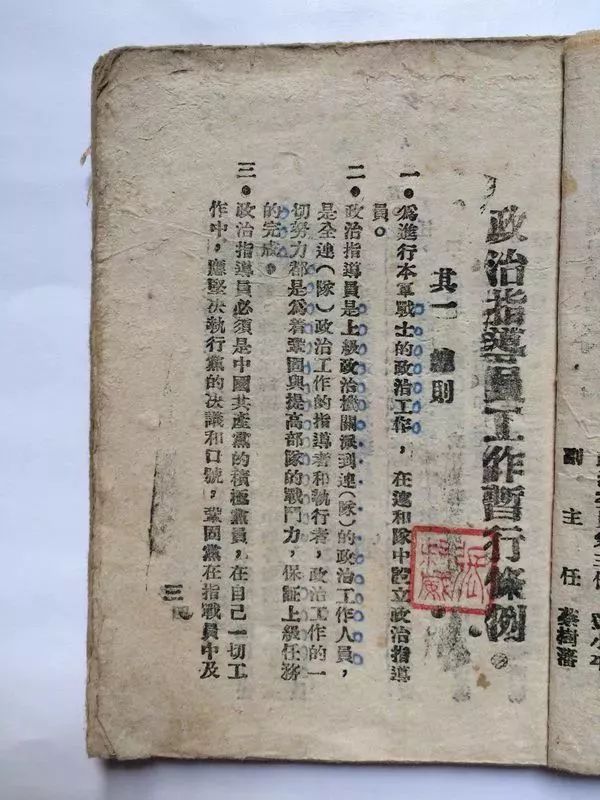 副 主 任 蔡樹藩
政治指導員工作暫行條例
其一 總則
一。爲進行本軍戰士的政治工作，在連和隊中設立政治指導
員。
二。政治指導員是上級政治機關派到連(隊)的政治工作人員，
是全連(隊)政治工作的指導者和執行者，政治工作的一
切努力都是爲着鞏固與提高部隊的戰鬥力，保証上級任務
的完成。
三。政治指導員必須是中國共產黨的積極黨員，在自己一切工
作中，應堅決執行黨的决議和口號，鞏固黨在指戰員中及